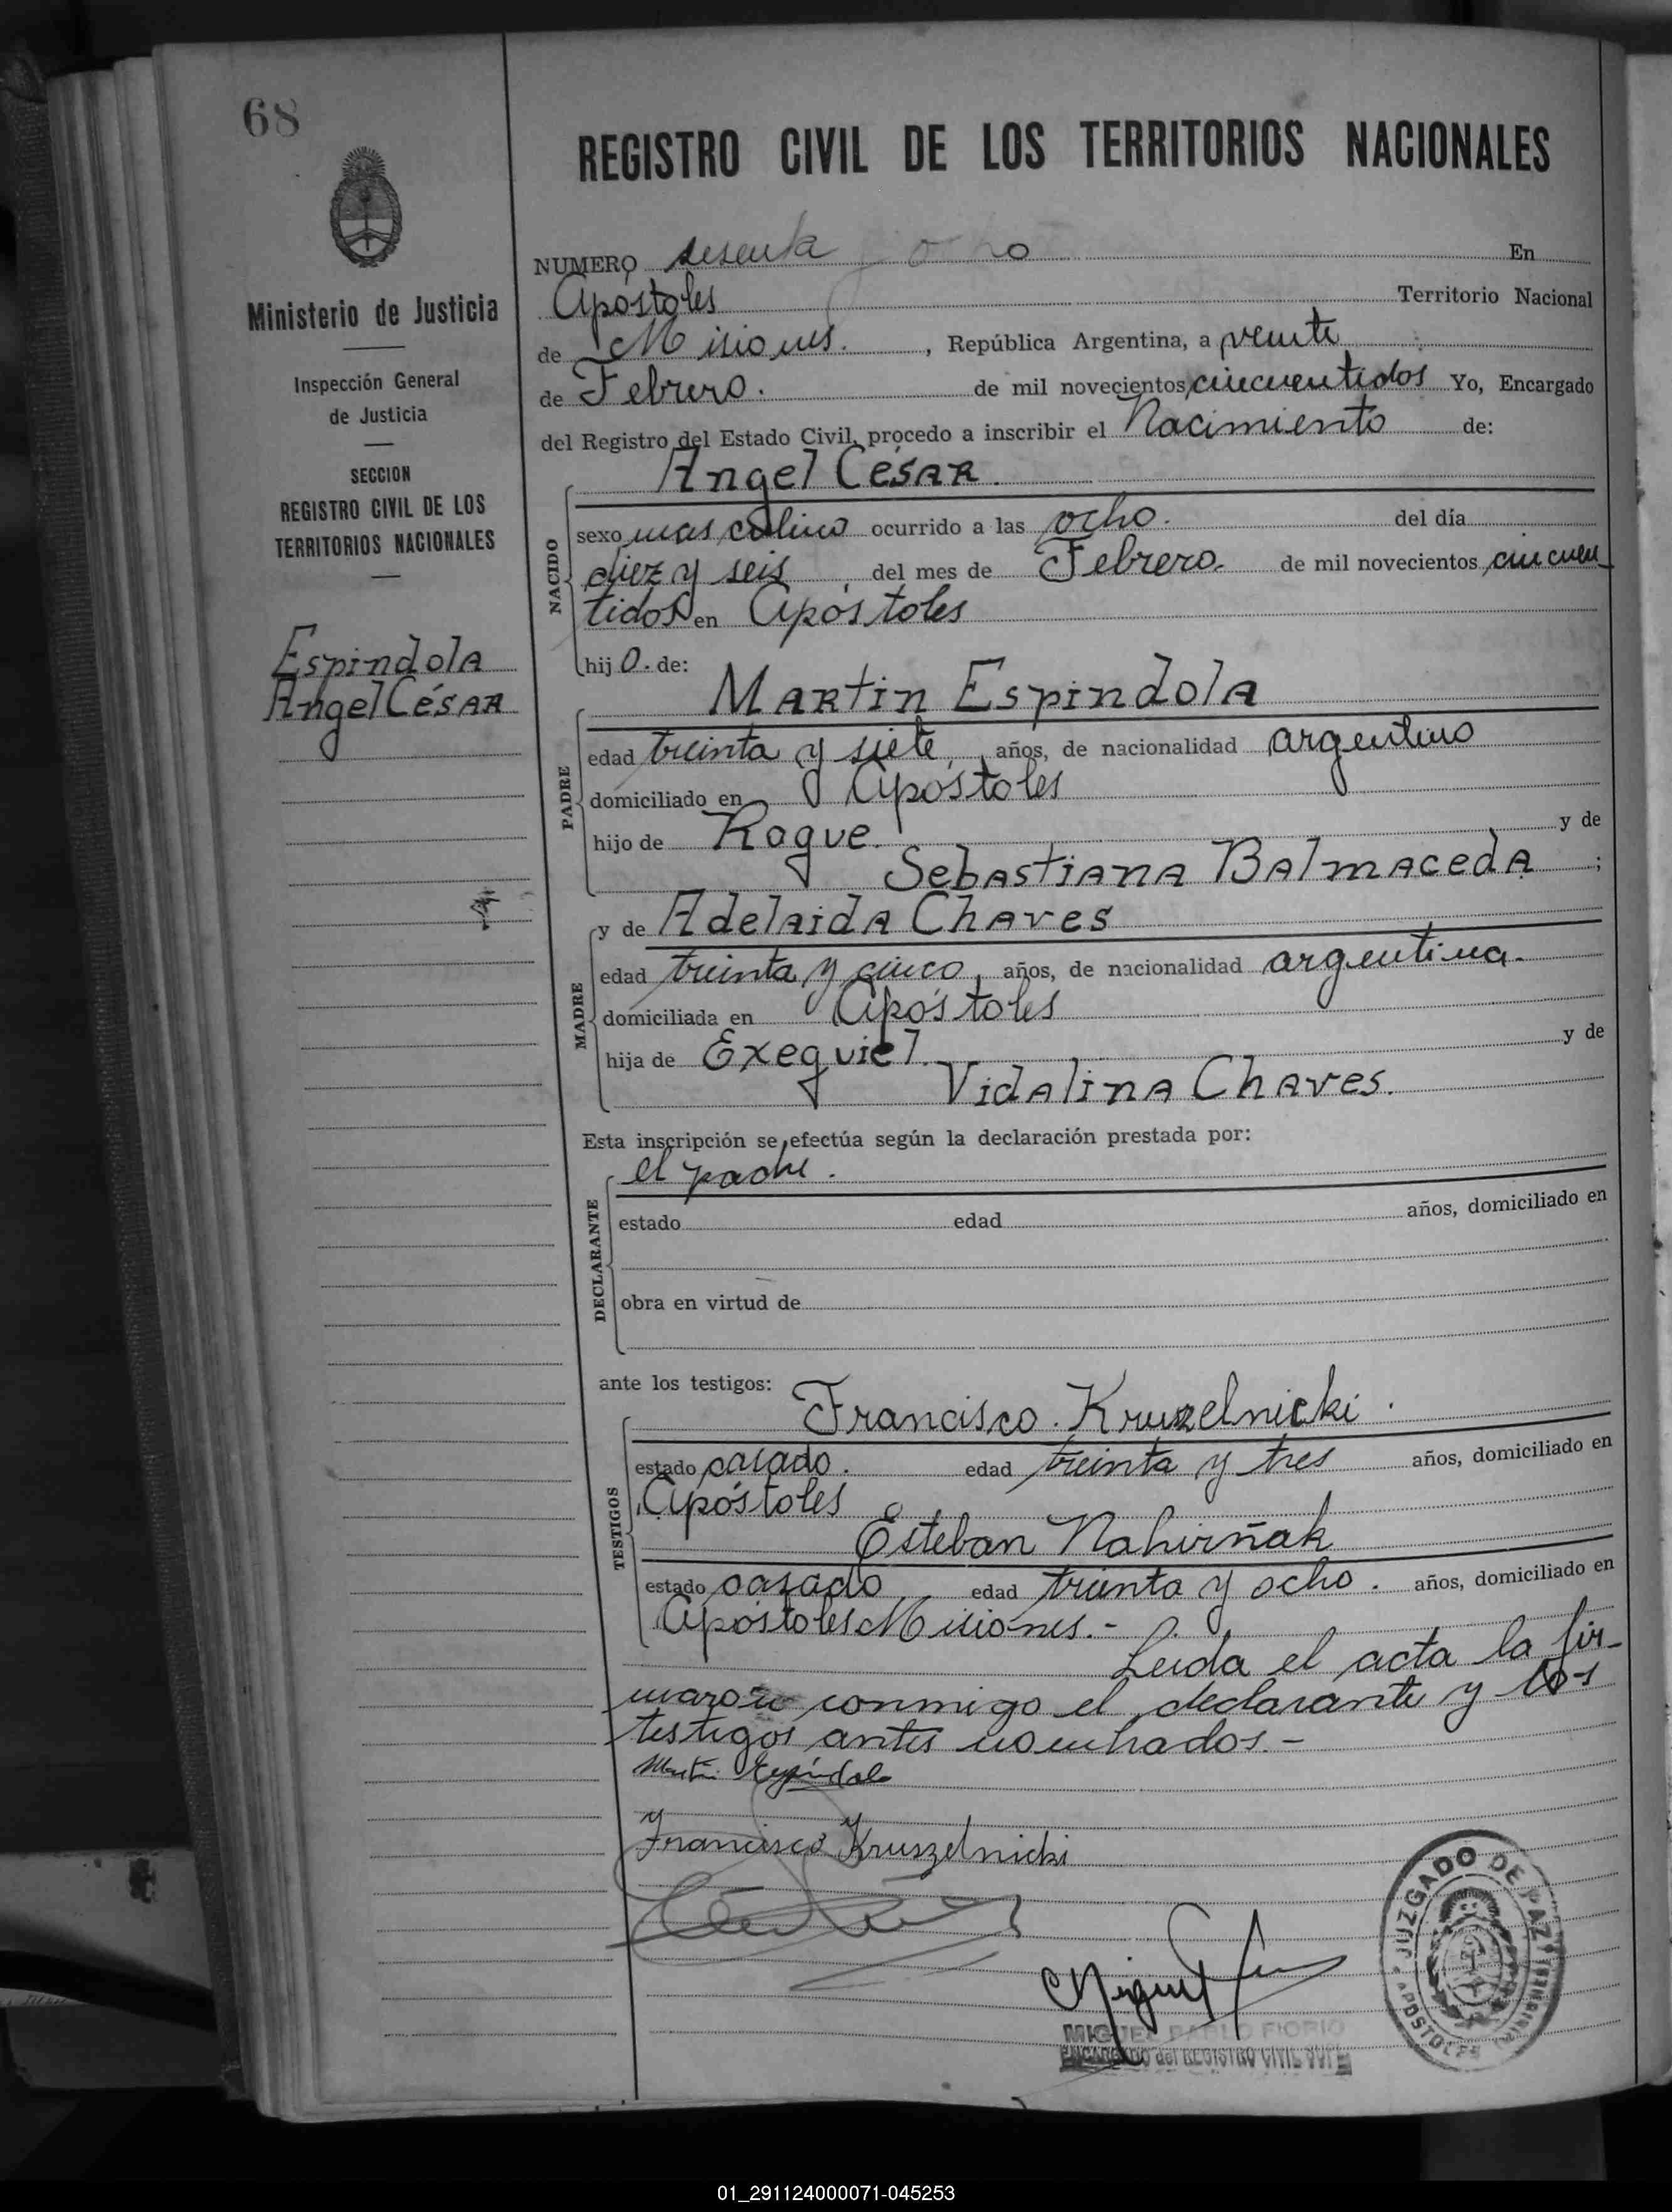 68
REGISTRO CIVIL DE LOS TERRITORIOS NACIONALES
Ministerio de Justicia
Inspección General
de Justicia
SECCION
REGISTRO CIVIL DE LOS
TERRITORIOS NACIONALES
Espindola
Angel César
NUMERO sesenta y ocho En
Apóstoles Territorio Nacional
de Misiones. , República Argentina, a veinte
de Febrero. de mil novecientos cincuentidos Yo, Encargado
del Registro del Estado Civil, procedo a inscribir el Nacimiento de:
Angel César.
NACIDO
sexo masculino ocurrido a las ocho. del día
diez y seis, del mes de Febrero. de mil novecientos cincuen-
tidos en Apóstoles
hijo. de:
Martin Espindola
PADRE
edad treinta y siete, años, de nacionalidad argentino
domiciliado en Apóstoles
hijo de Roque. y de
Sebastiana Balmaceda ;
MADRE
y de Adelaida Chaves
edad treinta y cinco, años, de nacionalidad argentina.
domiciliada en Apóstoles
hija de Exequiel. y de
Vidalina Chaves.
Esta inscripción se efectúa según la declaración prestada por:
DECLARANTE
el padre.
estado edad años, domiciliado en
obra en virtud de
ante los testigos:
TESTIGOS
Francisco. Kruzelnicki.
estado casado. edad treinta y tres años, domiciliado en
Apóstoles
Esteban Nahirñak
estado casado edad treinta y ocho. años, domiciliado en
Apóstoles Misiones.-
Leida el acta la fir-
maron conmigo el declarante y los
testigos antes nombrados.-
Martin Espindola
Francisco Kruszelnicki
Miguel
MIGUEL PABLO FIORIO
ENCARGADO del REGISTRO CIVIL
JUZGADO DE PAZ
APOSTOLES
01_291124000071-045253